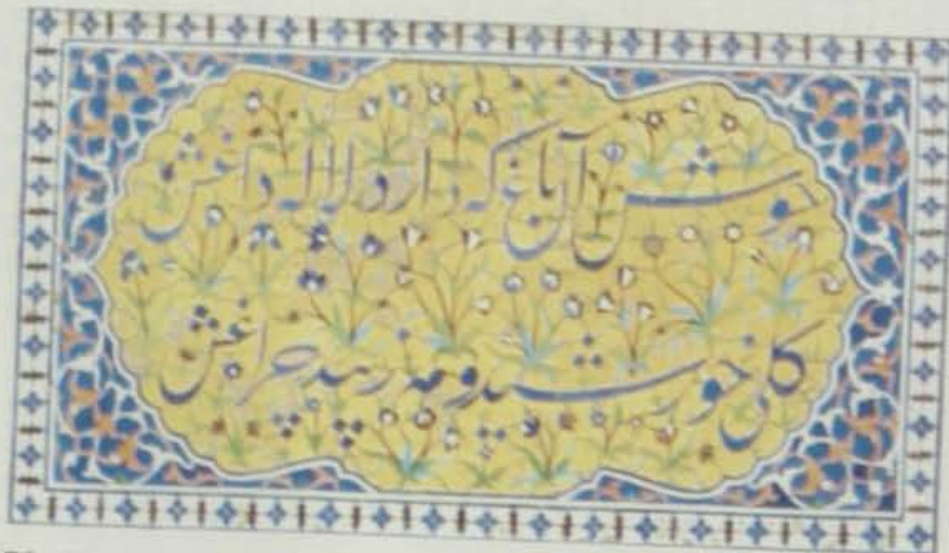 خوش آن که دارد لاله داغش
خورشید و مه زیبد چراغش